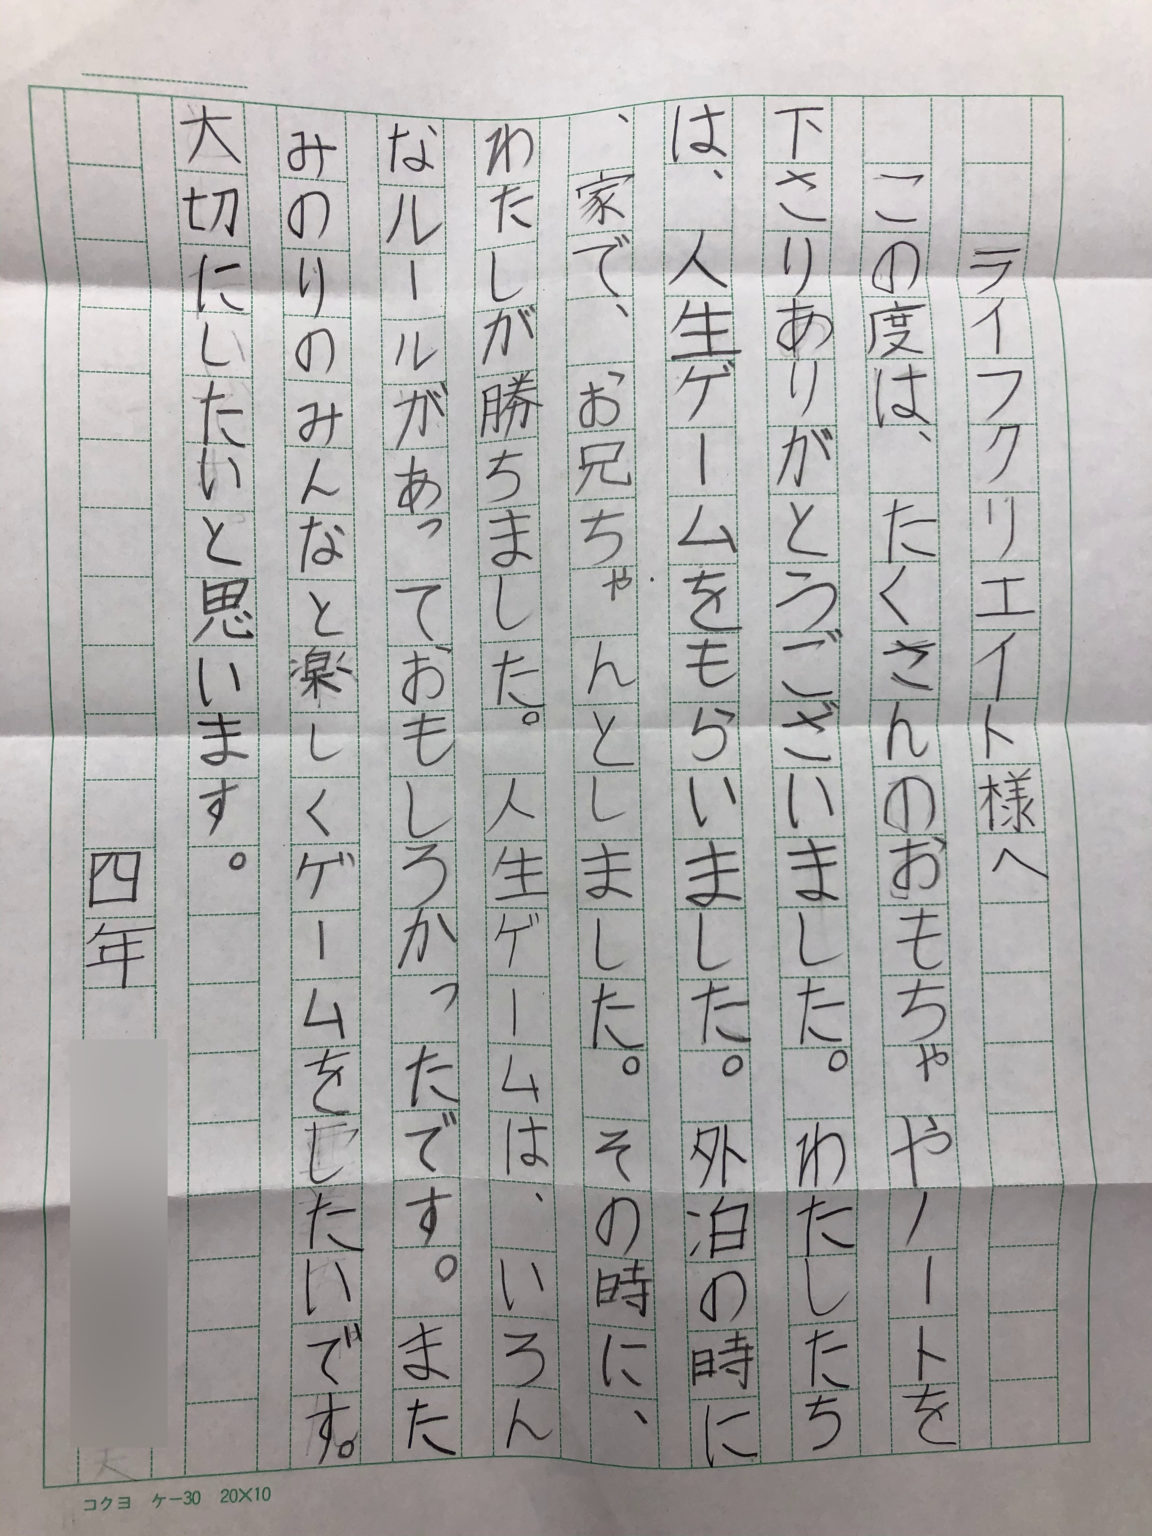 ライフクリエイト様へ
この度は、たくさんのおもちゃやノートを
下さりありがとうございました。わたしたち
は、人生ゲームをもらいました。外泊の時に
、家で、お兄ちゃんとしました。その時に、
わたしが勝ちました。人生ゲームは、いろん
なルールがあっておもしろかったです。また
みのりのみんなと楽しくゲームをしたいです。
大切にしたいと思います。
四年
コクヨ ケー30 20×10